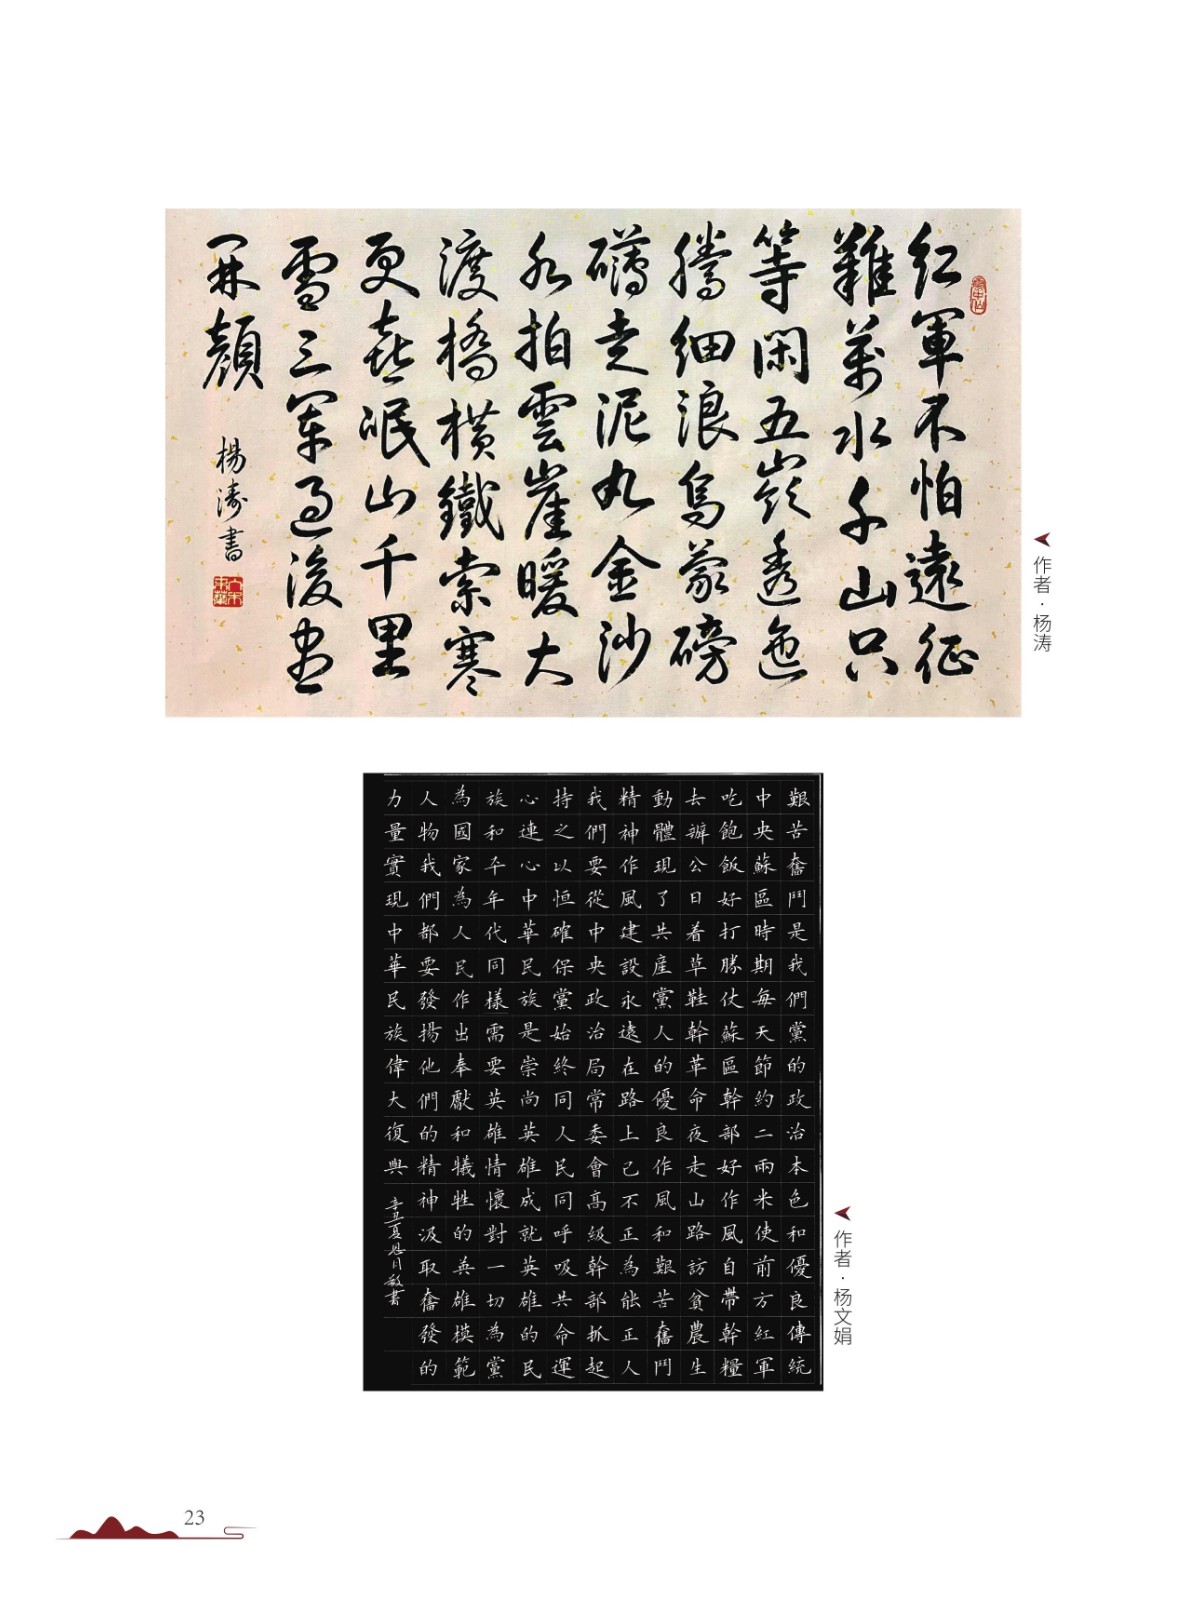 紅軍不怕遠征
難萬水千山只
等閑五嶺逶迤
騰細浪烏蒙磅
礴走泥丸金沙
水拍雲崖暖大
渡橋橫鐵索寒
更喜岷山千里
雪三軍過後盡
開顏
楊濤書
作者·杨涛
艱苦奮鬥是我們黨的政治本色和優良傳統
中央蘇區時期每天節約二兩米使前方紅軍
吃飽飯好打勝仗蘇區幹部好作風自帶幹糧
去辦公日着草鞋幹革命夜走山路訪貧農生
動體現了共産黨人的優良作風和艱苦奮鬥
精神作風建設永遠在路上己不正為能正人
我們要從中央政治局常委會高級幹部抓起
持之以恒確保黨始終同人民同呼吸共命運
心連心中華民族是崇尚英雄成就英雄的民
族和平年代同樣需要英雄情懷對一切為黨
為國家為人民作出奉獻和犧牲的英雄模範
人物我們都要發揚他們的精神汲取奮發的
力量實現中華民族偉大復興
辛丑夏
敬書
作者·杨文娟
23